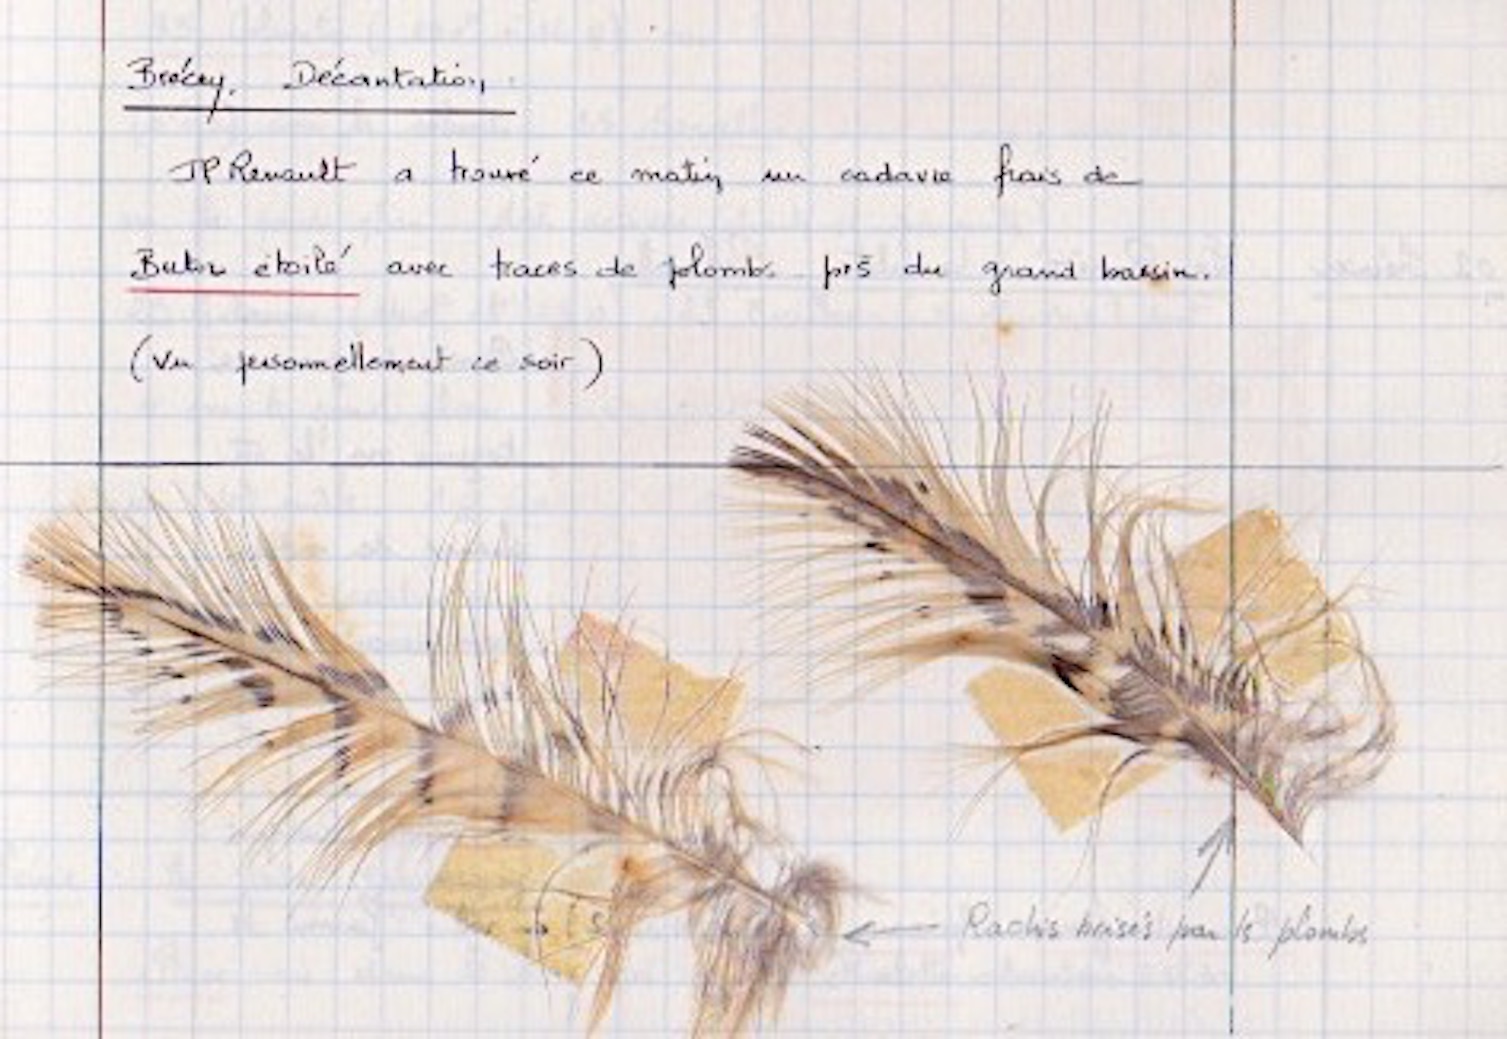 Brécey. Décantation
JP Renault a trouvé ce matin un cadavre frais de
Butor étoilé avec traces de plombs près du grand bassin.
(Vu personnellement ce soir)
Rachis brisés par ls plombs